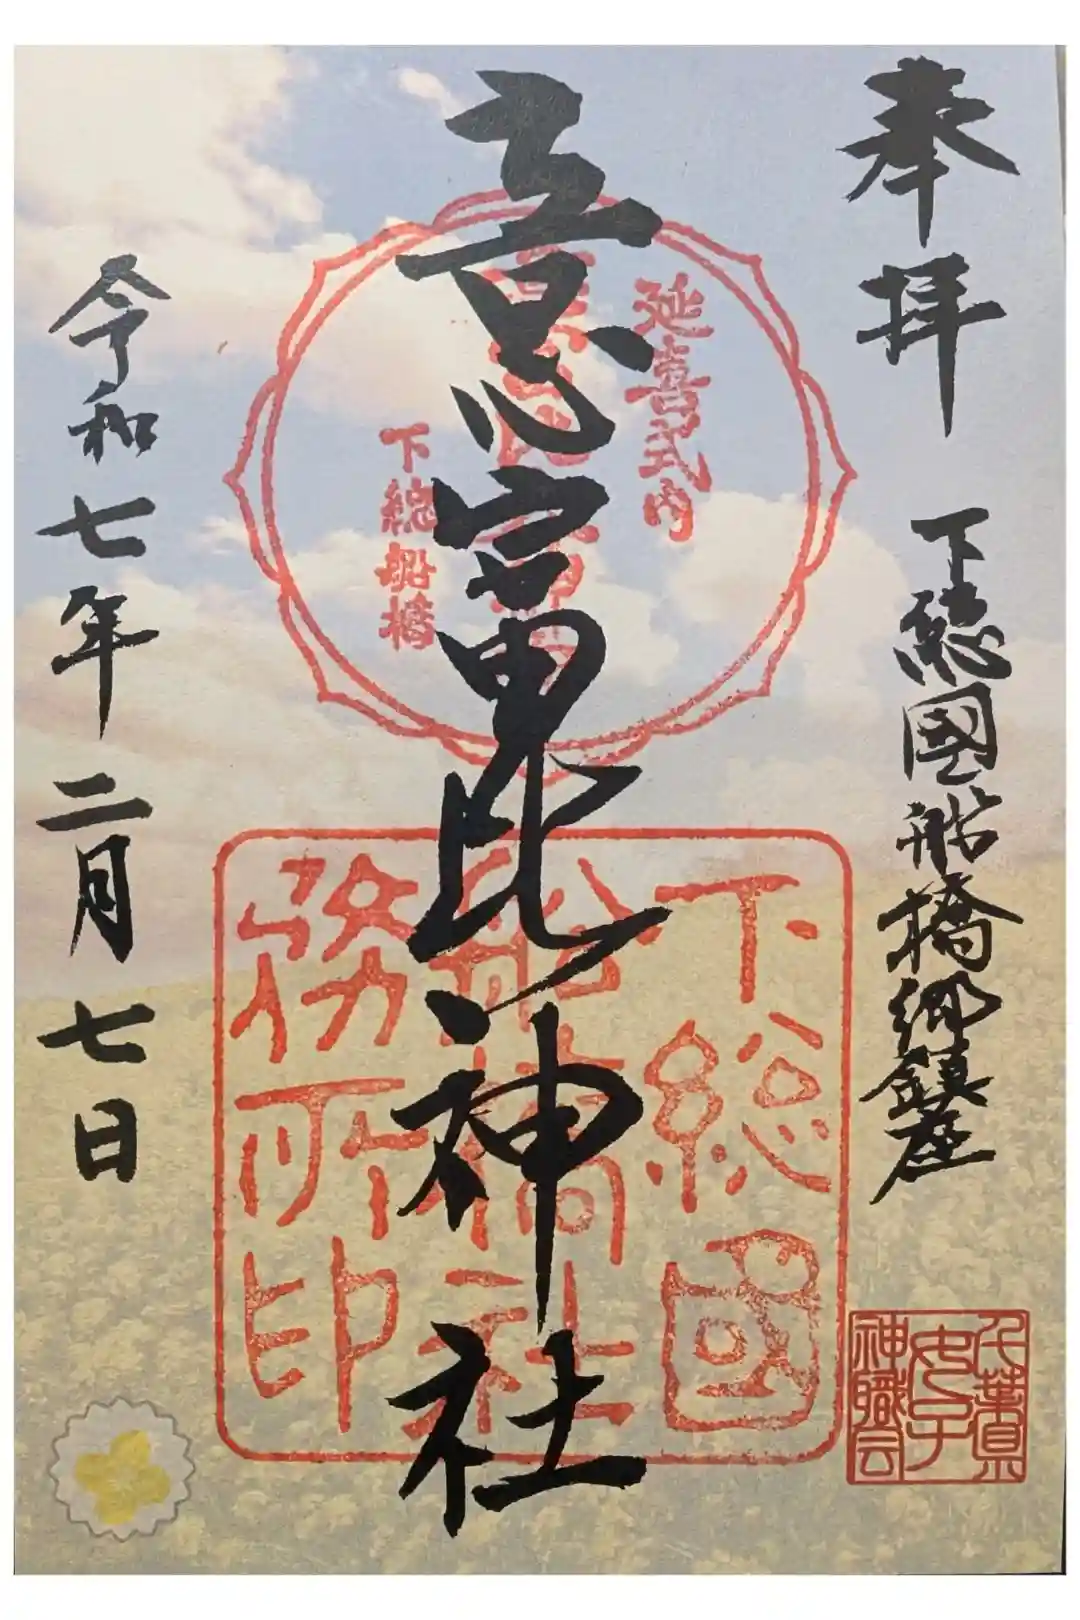 奉拝
下總國船橋郷鎮座
意富比神社
延喜式内
下総船橋
下総国
船橋社
務所印
千葉県
女子
神職会
令和七年二月七日